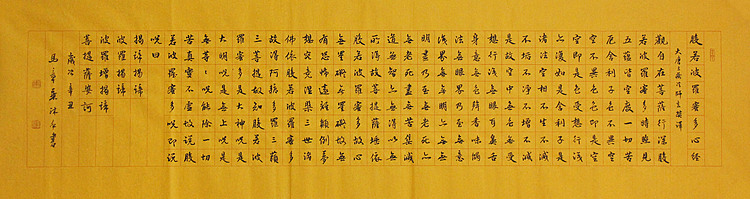 般若波羅蜜多心經
大唐三藏法師玄奘譯
觀自在菩薩行深般
若波羅蜜多時照見
五蘊皆空度一切苦
厄舍利子色不異空
空不異色色即是空
空即是色受想行識
亦復如是舍利子是
諸法空相不生不滅
不垢不淨不增不減
是故空中無色無受
想行識無眼耳鼻舌
身意無色聲香味觸
法無眼界乃至無意
識界無無明亦無無
明盡乃至無老死亦
無老死盡無苦集滅
道無智亦無得以無
所得故菩提薩埵依
般若波羅蜜多故心
無罣礙無罣礙故無
有恐怖遠離顛倒夢
想究竟涅槃三世諸
佛依般若波羅蜜多
故得阿耨多羅三藐
三菩提故知般若波
羅蜜多是大神咒是
大明咒是無上咒是
無等々咒能除一切
苦真實不虛故說般
若波羅蜜多咒即說
咒曰
揭諦揭諦
波羅揭諦
波羅僧揭諦
菩提薩婆訶
歲次辛丑